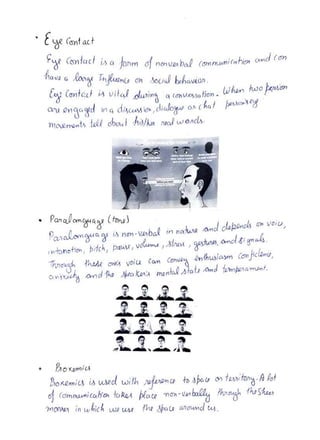 Eye Contact
Eye Contact is a form of nonverbal communication and can
have a large Influence on social behavior.
Eye Contact is vital during a conversation. When two person
are engaged in a discussion, dialogue or chat
movements tell about his/her real words.
Paralanguage (tone)
Paralanguage is non-verbal in nature and depends on voice,
intonation, pitch, pause, volume, stress, gestures, and signals.
Through these one's voice can convey enthusiasm confidence,
anxiety and the speaker's mental state and temperament.
Proxemics
Proxemics is used with reference to space or territory. A lot
of communication takes place non-verbally through the sheer
manner in which we use the space around us.